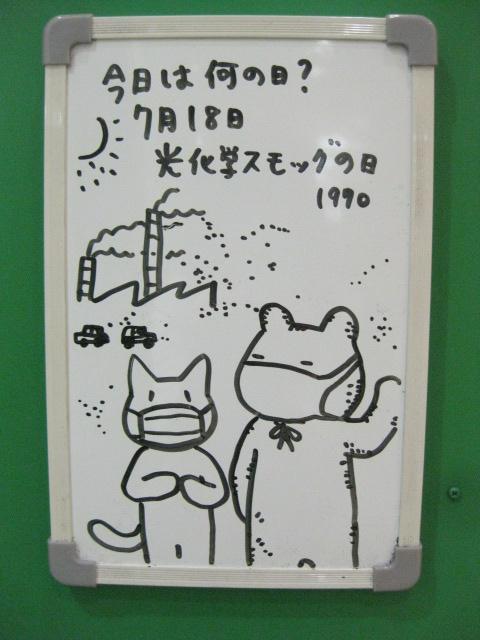 今日は何の日?
7月18日
光化学スモッグの日
1990